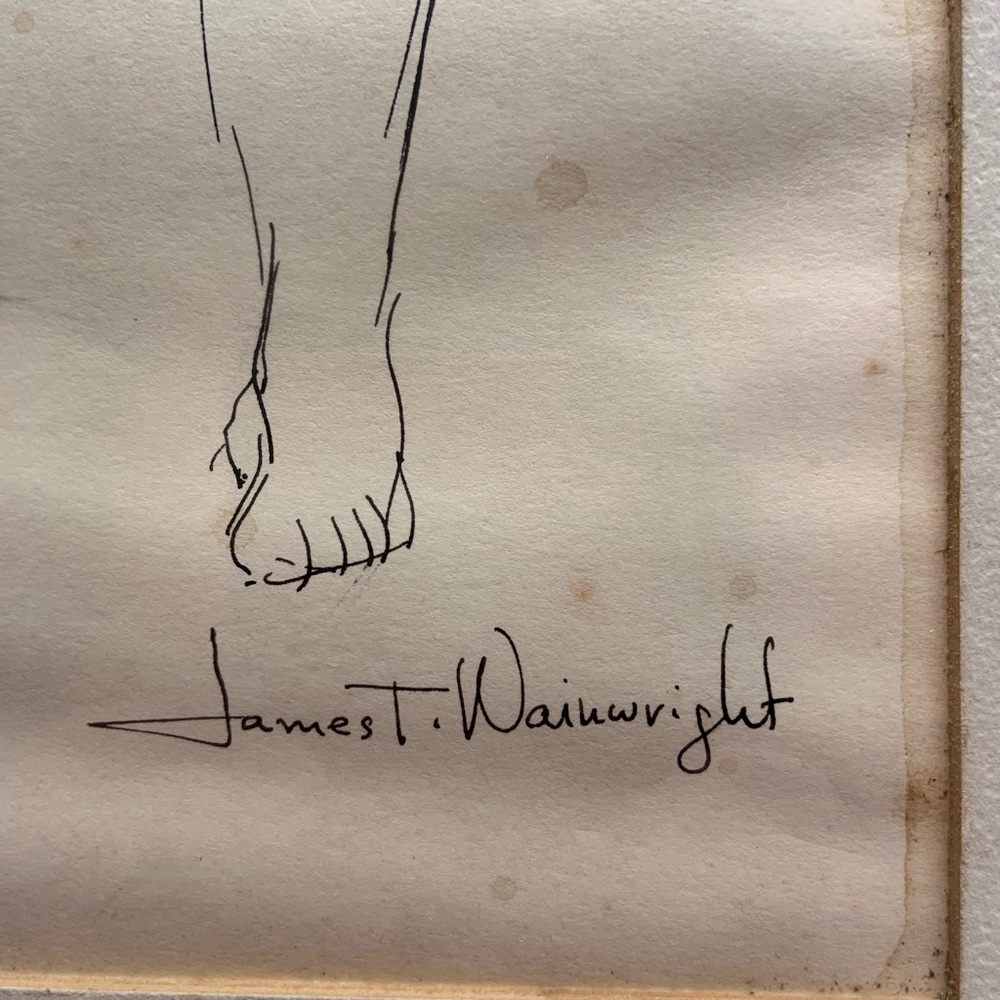 James T. Wainwright